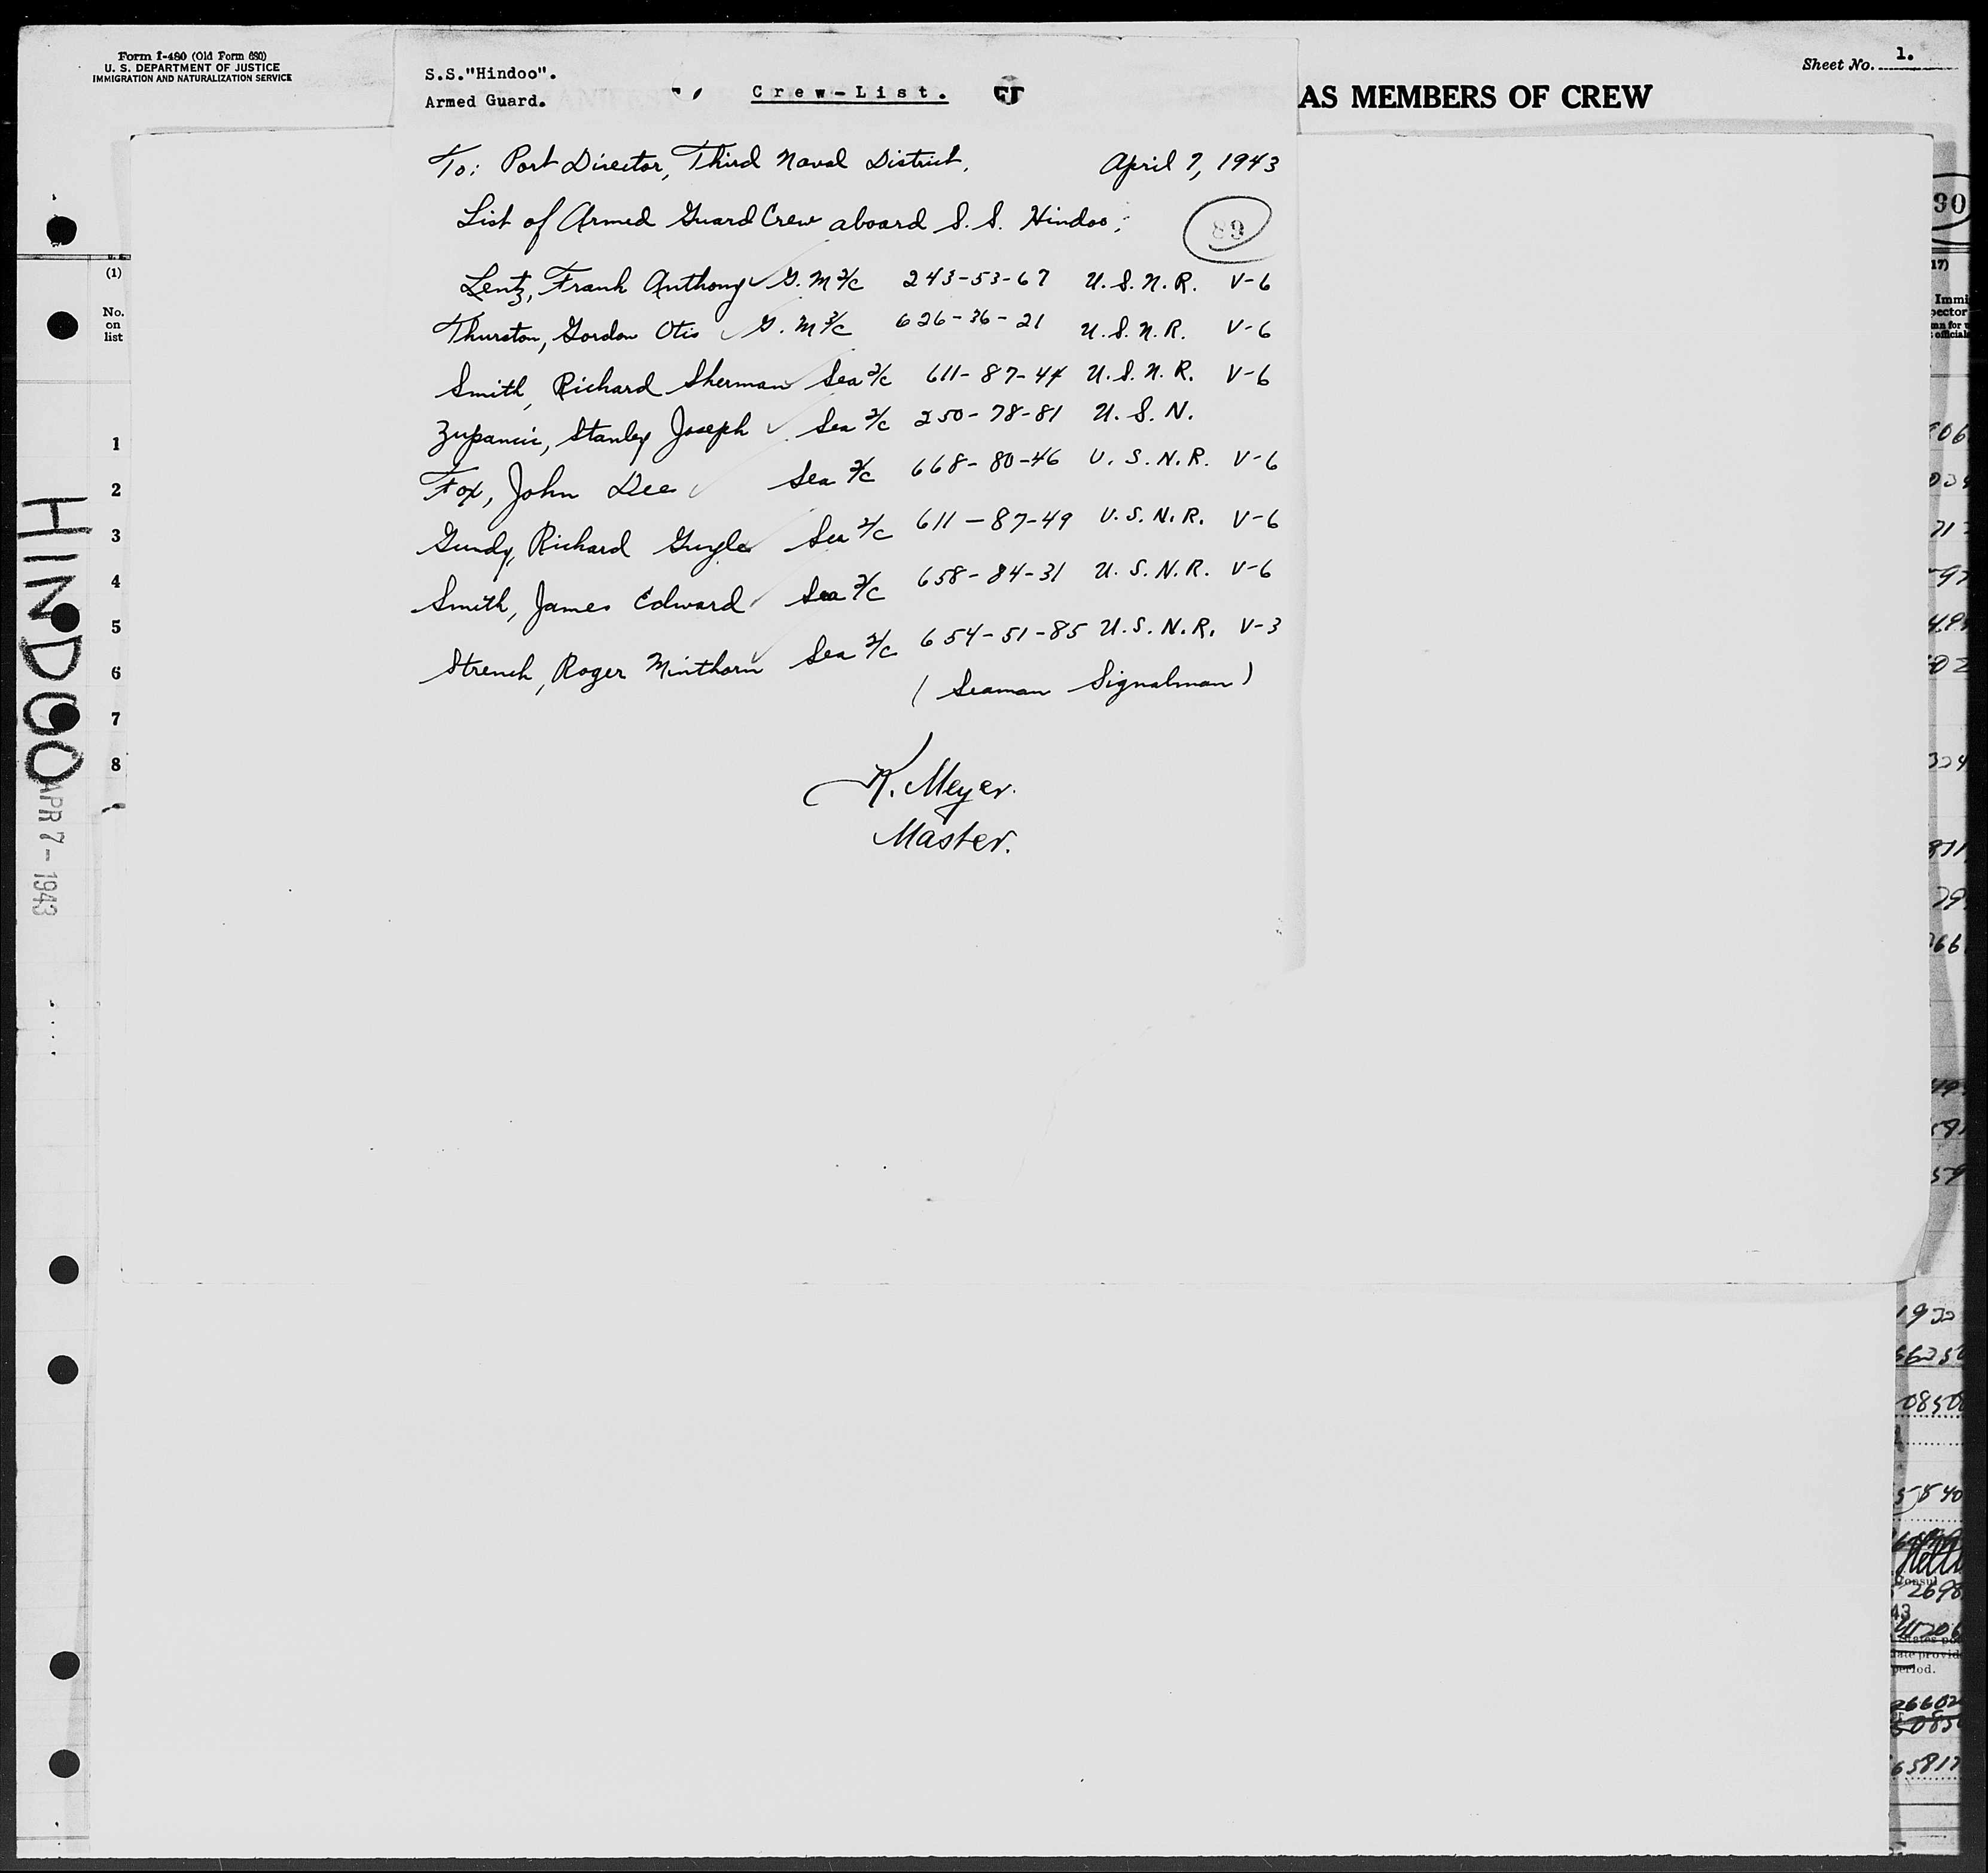 Form I-480 (Old Form 680)
U. S. DEPARTMENT OF JUSTICE
IMMIGRATION AND NATURALIZATION SERVICE
S.S."Hindoo".
Armed Guard.
Crew-List.
AS MEMBERS OF CREW
Sheet No. 1.
To: Port Director, Third Naval District. April 7, 1943
List of Armed Guard Crew aboard S. S. Hindoo:
89
Lentz, Frank Anthony G. M 2/c 243-53-67 U.S.N.R. V-6
Thurston, Gordon Otis G. M 3/c 626-36-21 U.S.N.R. V-6
Smith, Richard Sherman Sea 2/c 611-87-44 U.S.N.R. V-6
Zupancic, Stanley Joseph Sea 2/c 250-78-81 U.S.N.
Fox, John Dee Sea 2/c 668-80-46 U.S.N.R. V-6
Gundy, Richard Sea 2/c 611-87-49 U.S.N.R. V-6
Smith, James Edward Sea 2/c 658-84-31 U.S.N.R. V-6
Strench, Roger Minthorn Sea 2/c 654-51-85 U.S.N.R. V-3
(Seaman Signalman)
K. Meyer.
Master.
(1)
No.
on
list
1
2
3
4
5
6
7
8
HINDOO
APR 7-1943
90
17)